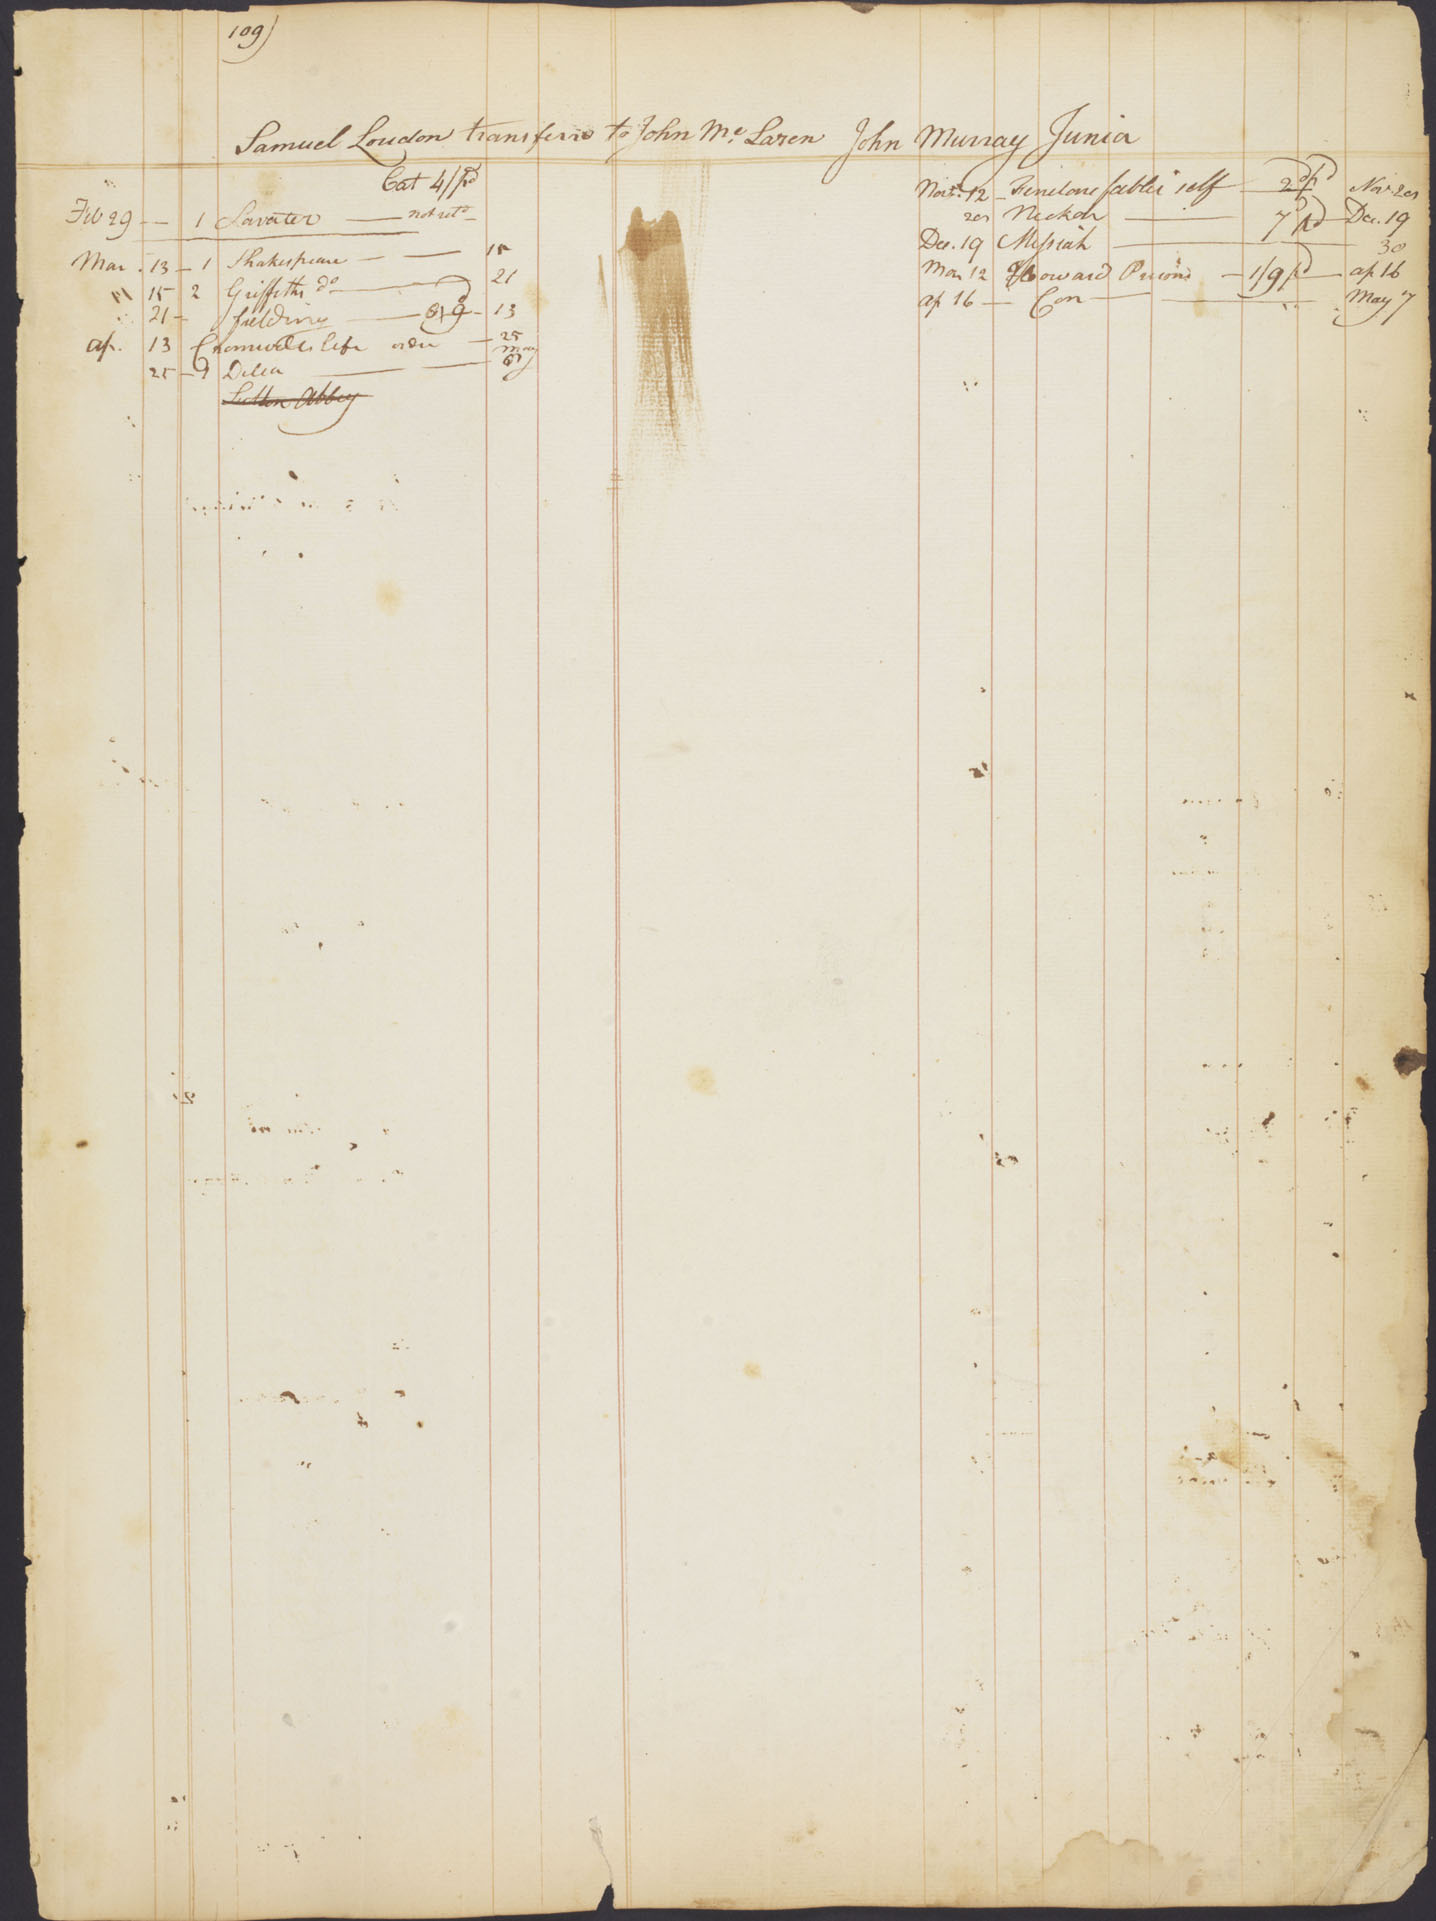 109)
Samuel Loudon transferd to John Mc. Laren
Cat 4/ pd
Feb 29 — 1 Lavater — not retd
Mar. 13 — 1 Shakespeare — — 15
15 2 Griffiths do — 21
21 — fielding — 13
ap. 13 Cromwells life — 25
May
25 — Delia — —
Sutton Abbey
John Murray Junior
Novr. 12 — Fenelons fables self — 2d pd Nov 20
20 Neckar — 7d pd Dec. 19
Dec. 19 Messiah — 30
Mar 12 Howard Prisons — 1/9 pd — ap 16
ap 16 — Con — May 7